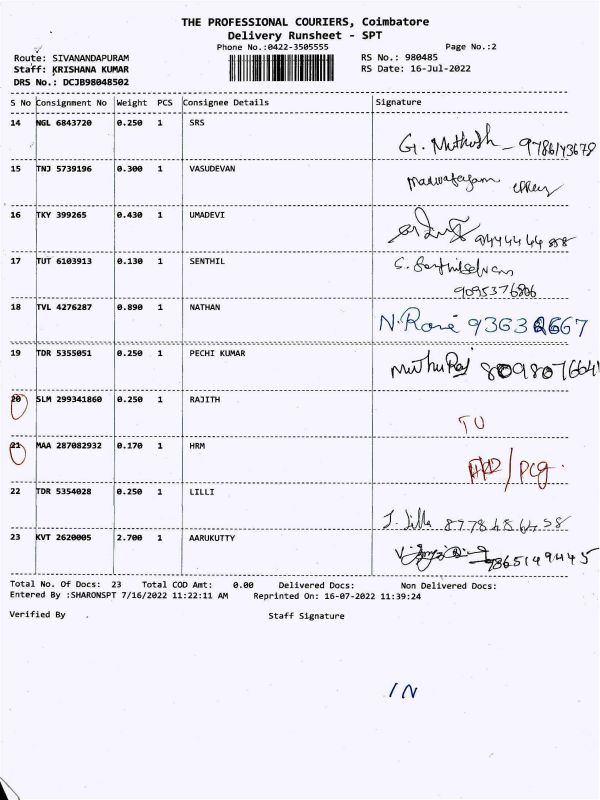 THE PROFESSIONAL COURIERS, Coimbatore
Delivery Runsheet - SPT
Phone No.:0422-3505555
Page No.:2
Route: SIVANANDAPURAM
RS No.: 980485
Staff: KRISHANA KUMAR
RS Date: 16-Jul-2022
DRS No.: DCJB98048502
S No Consignment No Weight PCS Consignee Details Signature
14 NGL 6843720 0.250 1 SRS
G. Muthosh -
15 TNJ 5739196 0.300 1 VASUDEVAN
16 TKY 399265 0.430 1 UMADEVI
17 TUT 6103913 0.130 1 SENTHIL
S. Senthilselvan
9095376806
18 TVL 4276287 0.890 1 NATHAN
N. Rani
19 TDR 5355051 0.250 1 PECHI KUMAR
MuthuRaj
20 SLM 299341860 0.250 1 RAJITH
TO
21 MAA 287082932 0.170 1 HRM
22 TDR 5354028 0.250 1 LILLI
J. Lilla
23 KVT 2620005 2.700 1 AARUKUTTY
9865149445
Total No. Of Docs: 23 Total COD Amt: 0.00 Delivered Docs: Non Delivered Docs:
Entered By :SHARONSPT 7/16/2022 11:22:11 AM Reprinted On: 16-07-2022 11:39:24
Verified By Staff Signature
IN